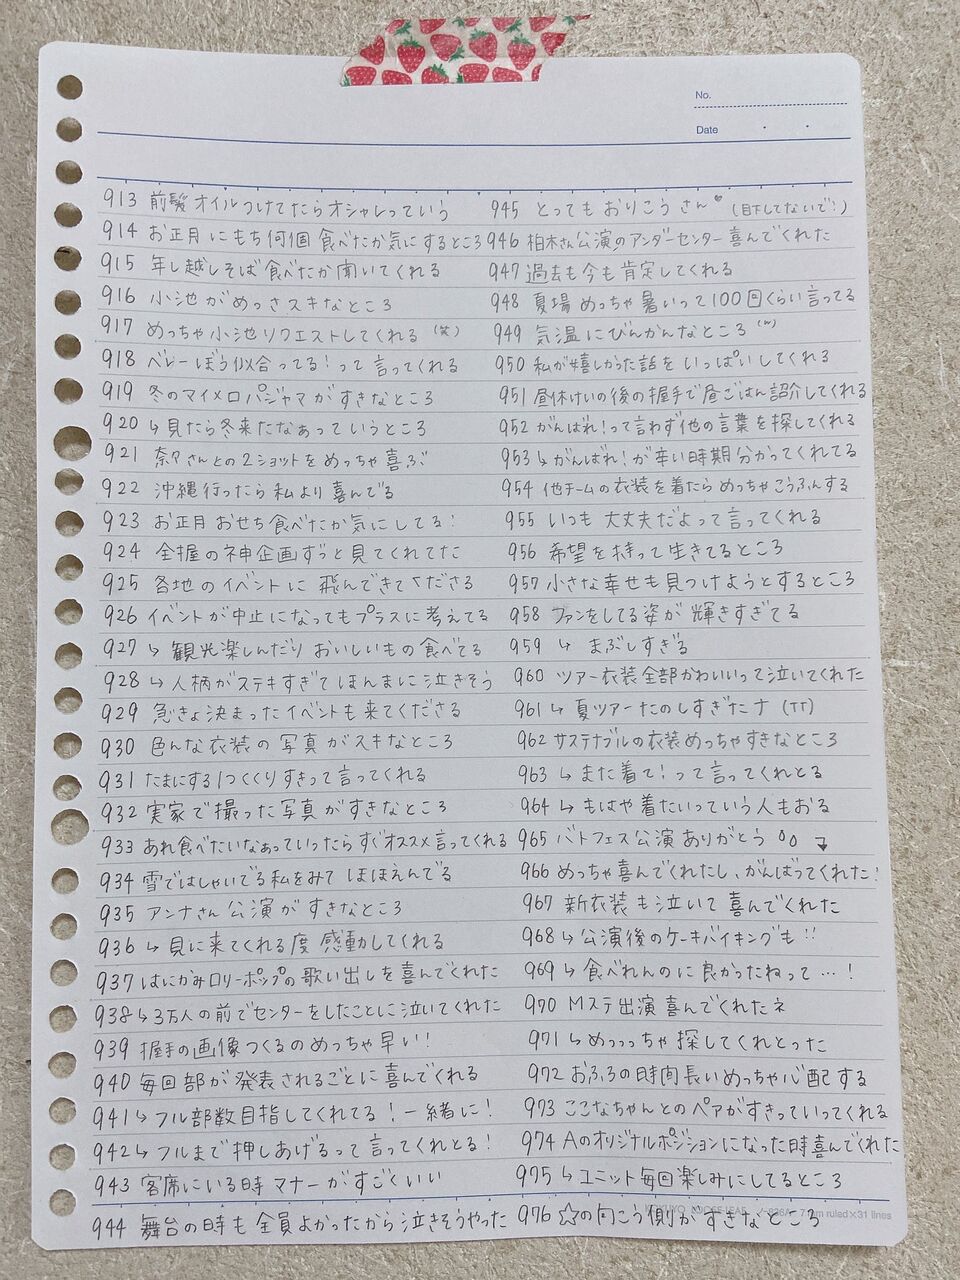 No.
Date
913 前髪オイルつけてたらオシャレっていう
914 お正月にもち何個食べたか気にするところ
915 年し越しそば食べたか聞いてくれる
916 小池がめっさスキなところ
917 めっちゃ小池リクエストしてくれる(笑)
918 ベレーぼう似合ってる!って言ってくれる
919 冬のマイメロパジャマがすきなところ
920 ↳見たら冬来たなぁっていうところ
921 奈々さんとの2ショットをめっちゃ喜ぶ
922 沖縄行ったら私より喜んでる
923 お正月おせち食べたか気にしてる!
924 全握の神企画ずっと見てくれてた
925 各地のイベントに飛んできてくださる
926 イベントが中止になってもプラスに考えてる
927 ↳観光楽しんだりおいしいもの食べてる
928 ↳人柄がステキすぎてほんまに泣きそう
929 急きょ決まったイベントも来てくださる
930 色んな衣装の写真がスキなところ
931 たまにする1つくくりすきって言ってくれる
932 実家で撮った写真がすきなところ
933 あれ食べたいなぁっていったらすぐオススメ言ってくれる
934 雪ではしゃいでる私をみてほほえんでる
935 アンナさん公演がすきなところ
936 ↳見に来てくれる度感動してくれる
937 はにかみロリーポップの歌い出しを喜んでくれた
938 ↳3万人の前でセンターをしたことに泣いてくれた
939 握手の画像つくるのめっちゃ早い!
940 毎回部が発表されるごとに喜んでくれる
941 ↳フル部数目指してくれてる!一緒に!
942 ↳フルまで押しあげるって言ってくれとる!
943 客席にいる時マナーがすごくいい
944 舞台の時も全員よかったから泣きそうやった
945 とってもおりこうさん♥(目下してないで!)
946 柏木さん公演のアンダーセンター喜んでくれた
947 過去も今も肯定してくれる
948 夏場めっちゃ暑いって100回くらい言ってる
949 気温にびんかんなところ(w)
950 私が嬉しかった話をいっぱいしてくれる
951 昼休けいの後の握手で昼ごはん紹介してくれる
952 がんばれ!って言わず他の言葉を探してくれる
953 ↳がんばれ!が辛い時期分かってくれてる
954 他チームの衣装を着たらめっちゃこうふんする
955 いつも大丈夫だよって言ってくれる
956 希望を持って生きてるところ
957 小さな幸せも見つけようとするところ
958 ファンをしてる姿が輝きすぎてる
959 ↳まぶしすぎる
960 ツアー衣装全部かわいいって泣いてくれた
961 ↳夏ツアーたのしすぎたナ(TT)
962 サステナブルの衣装めっちゃすきなところ
963 ↳また着て!って言ってくれとる
964 ↳もはや着たいっていう人もおる
965 バトフェス公演ありがとう
966 めっちゃ喜んでくれたし、がんばってくれた!
967 新衣装も泣いて喜んでくれた
968 ↳公演後のケーキバイキングも!!
969 ↳食べれんのに良かったねって…!
970 Mステ出演喜んでくれたネ
971 ↳めっっっちゃ探してくれとった
972 おふろの時間長いめっちゃ心配する
973 ここなちゃんとのペアがすきっていってくれる
974 Aのオリジナルポジションになった時喜んでくれた
975 ↳ユニット毎回楽しみにしてるところ
976 ☆の向こう側がすきなところ